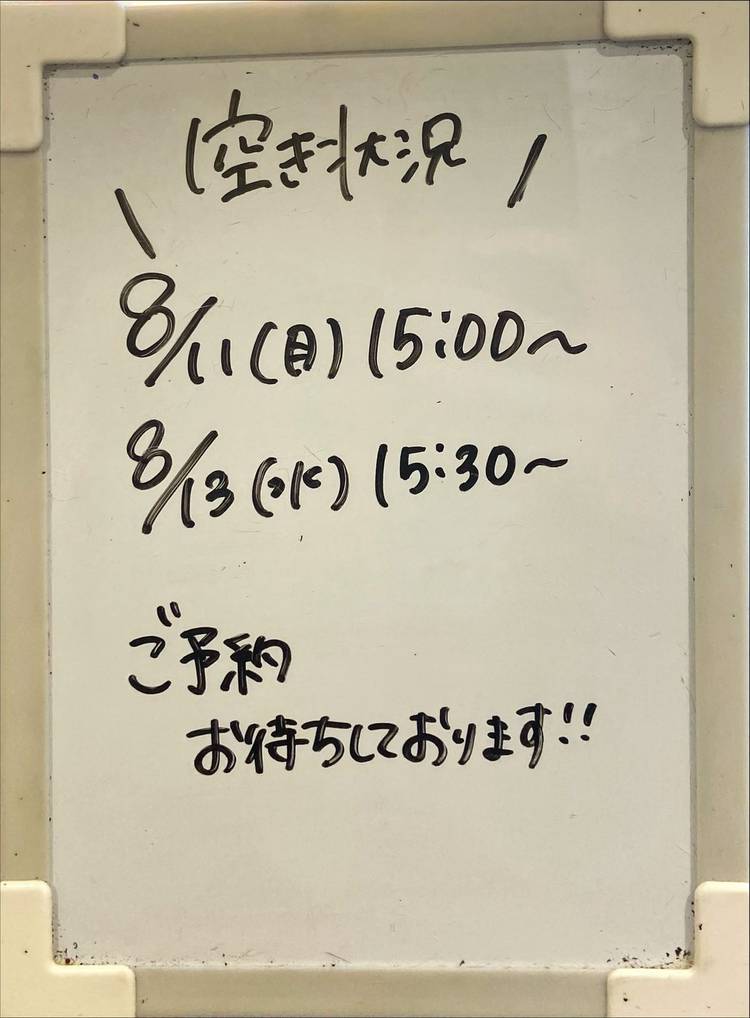 空き状況
8/11(月) 15:00～
8/13(水) 15:30～
ご予約
お待ちしております!!